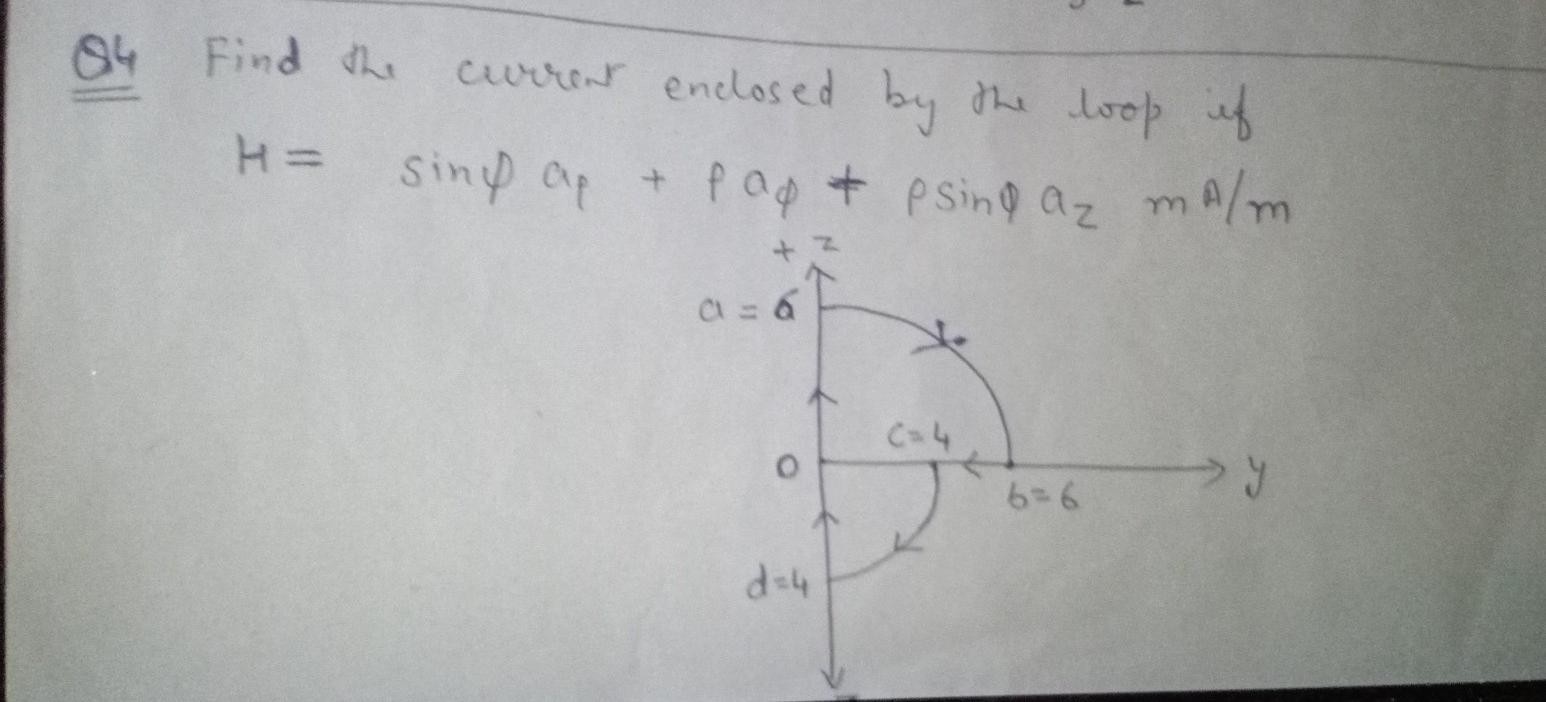 Q4 Find the current enclosed by the loop if
H = sinφ aρ + ρ aφ + ρ sinφ az mA/m
+ z
a = 6
c=4
O
y
b=6
d=4